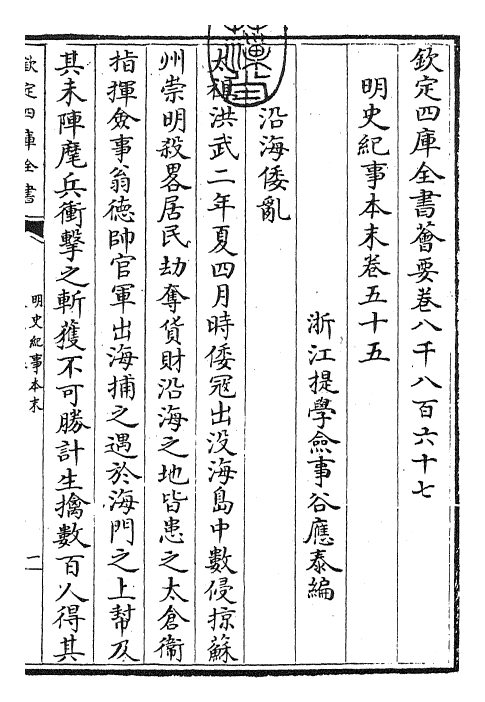 欽定四庫全書薈要卷八千八百六十七
明史紀事本末卷五十五
浙江提學僉事谷應泰編
沿海倭亂
太祖洪武二年夏四月時倭冦出没海島中數侵掠蘇
州崇明殺畧居民劫奪貨財沿海之地皆患之太倉衞
指揮僉事翁德帥官軍出海捕之遇於海門之上幇及
其未陣麾兵衝擊之斬獲不可勝計生擒數百人得其
欽定四庫全書
明史紀事本末